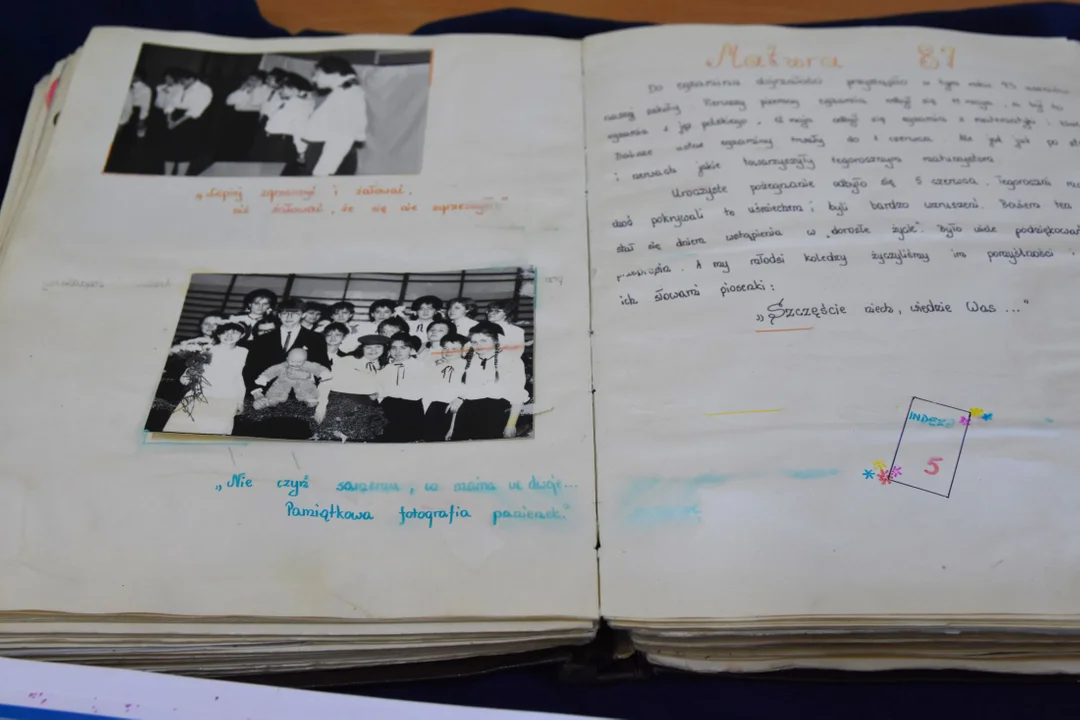 „Lepiej zgrzeszyć i żałować,
niż żałować, że się nie zgrzeszyło"
„Nie czyń samemu, co można we dwoje...
Pamiątkowa fotografia panienek."
Matura 87
Do egzaminu dojrzałości przystąpiło w tym roku 45 uczniów
naszej szkoły. Pierwszy pisemny egzamin odbył się
egzamin z jęz. polskiego, 12 maja odbył się egzamin z matematyki i
ustne egzaminy trwały do 2 czerwca. Ale już po
i nerwach jakie towarzyszyły tegorocznym maturzystom.
Uroczyste pożegnanie odbyło się 5 czerwca. Tegoroczni
choć pokrywali to uśmiechem, byli bardzo wzruszeni. Bowiem ten
stał się dniem wstąpienia w „dorosłe życie". Było wiele podziękowań
A my młodsi koledzy życzyliśmy im pomyślności i
ich słowami piosenki:
„Szczęście niech wiedzie Was ..."
INDEKS
5